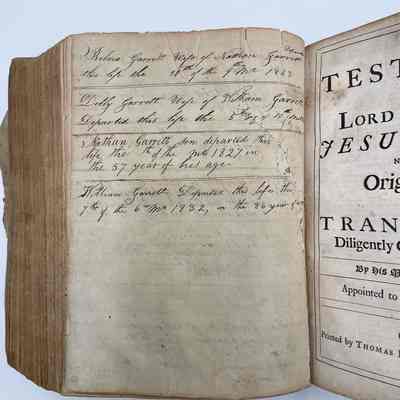 Garrett Wife of Nathan Garrett
this life the 28th of the 9th Mo 1863
Garrett Wife of William Garrett
Departed this life the 5th of
Nathan Garrett, son departed this
life the th of the 1827 in
the 57 year of his age
William Garrett Departed this life the
7th of the 6th Mo 1832, in the 86 year of
TEST
LORD
JESU
N
Orig
TRAN
Diligently C
By His M
Appointed to
Printed by THOMAS